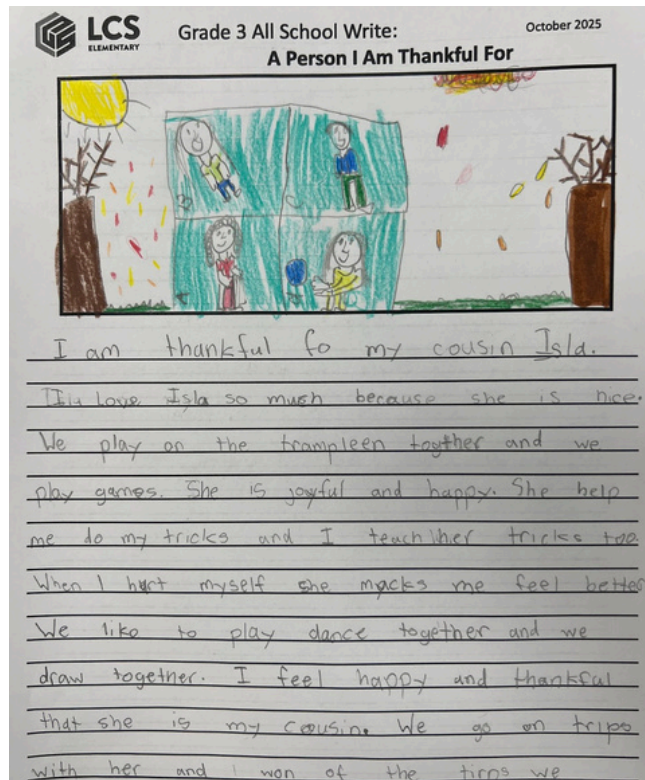 LCS
ELEMENTARY
Grade 3 All School Write:
October 2025
A Person I Am Thankful For
I am thankful fo my cousin Isla.
I love Isla so much because she is nice.
We play on the trampleen togther and we
play games. She is joyful and happy. She help
me do my tricks and I teach her tricks too.
When I hurt myself she macks me feel better
We like to play dance together and we
draw together. I feel happy and thankful
that she is my cousin. We go on trips
with her and won of the tirps we